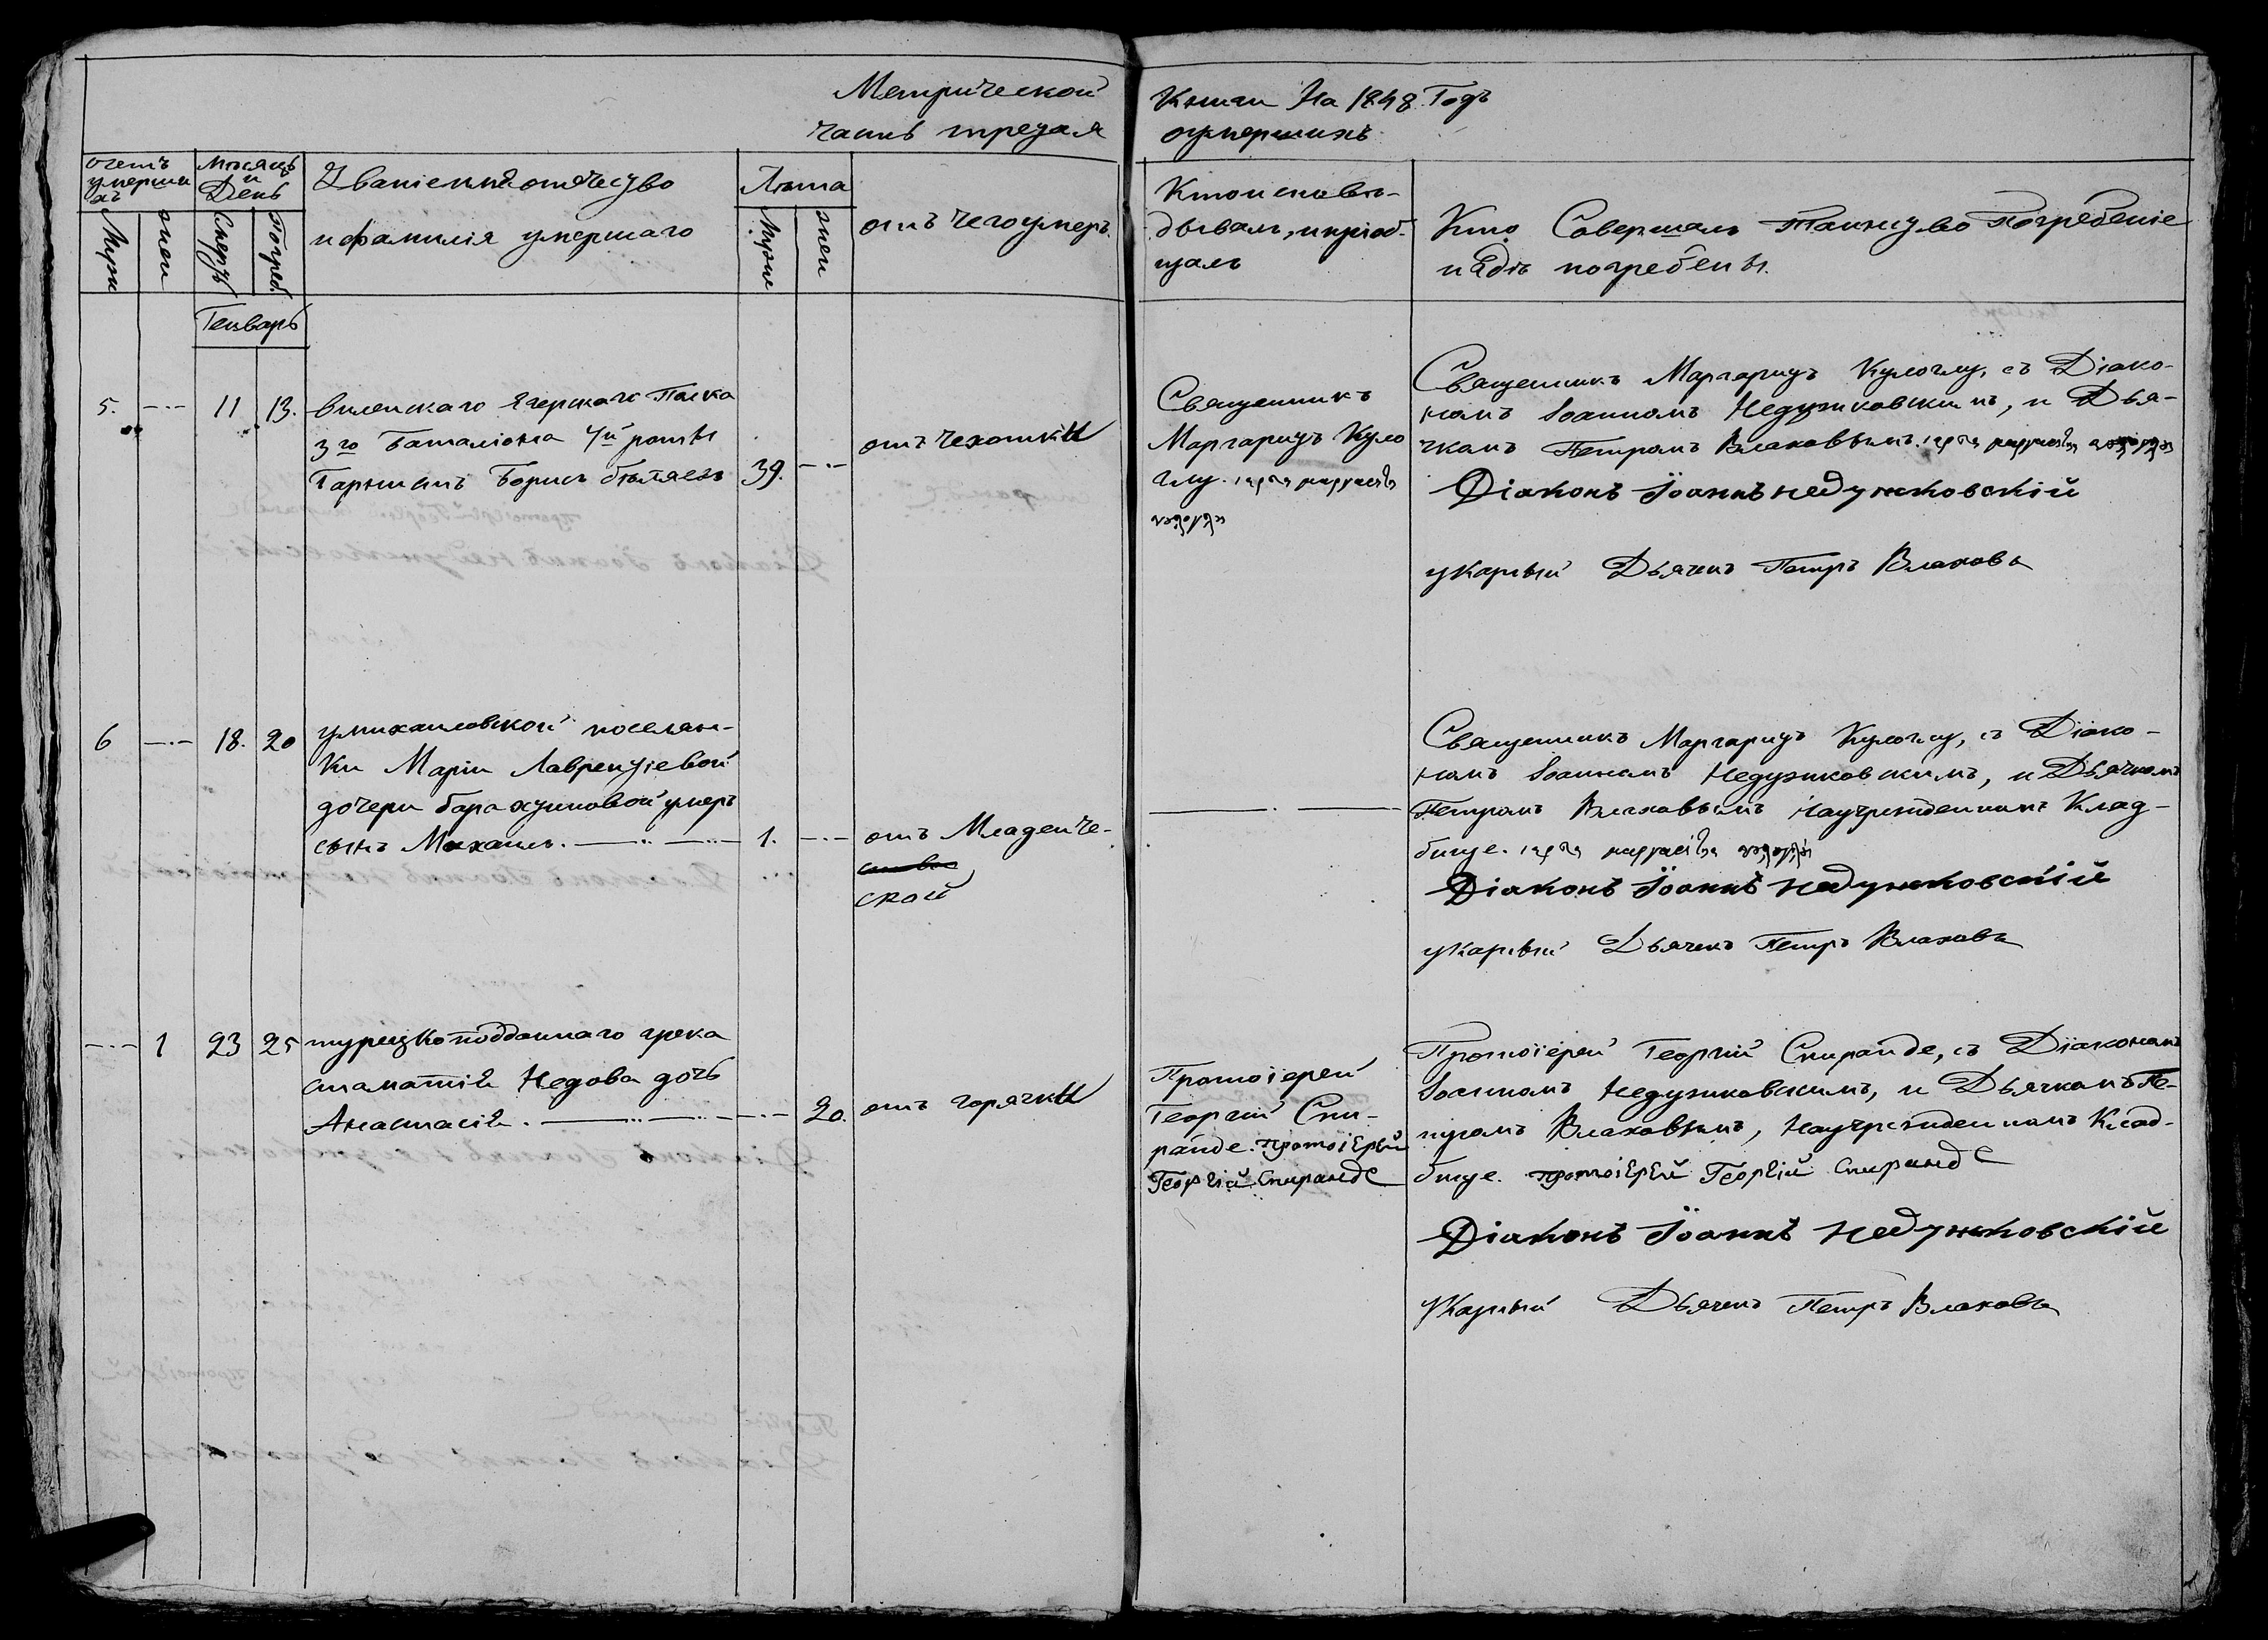 Метрической Книги На 1848 Годъ
часть третая оумершихъ
счетъ умерши хъ
Мужи
жен
Мѣсяцъ и День
Смерть
Погреб.
Званіе имя отчество
и фамилія умершаго
Лѣта
Мужие
жен
отъ чего умеръ.
Кто исповѣ-
дывалъ, и пріоб-
щалъ
Кто Совершалъ Таинство Погребеніе
и где погребены.
Генварь
5. 11 13. виленскаго Ягерскаго Полка
3го Баталіона 4й роты
Гарнистъ Борисъ бѣляевъ 39.
отъ чехотки
Священникъ
Маргаридъ Куло
глу.
Священникъ Маргаридъ Кулоглу, съ Діако-
номъ Іоанномъ Недужковскимъ, и Дья-
чкомъ Петромъ Влаховымъ.
Діаконъ Іоаннъ недужковскій
указный Дьячекъ Петръ Влаховъ
6 18. 20 у михаиловской поселян-
ки Маріи Лаврентіевой
дочери барахтиновой умеръ
сынъ Михаилъ. 1.
отъ Младенче-
ской
Священникъ Маргаридъ Кулоглу, съ Діако-
номъ Іоанномъ Недужковскимъ, и Дьячкомъ
Петромъ Влаховымъ На учрежденномъ Клад-
бище.
Діаконъ Іоаннъ недужковскій
указный Дьячекъ Петръ Влаховъ
1 23 25 турецкоподданнаго грека
стаматія Недова дочь
Анастасія. 20.
отъ горячки
Протоіерей
Георгій Спи-
ранде. протоіерей
Георгій Спиранде
Протоіерей Георгій Спиранде, съ Діакономъ
Іоанномъ Недужковскимъ, и Дьячкомъ Пе-
тромъ Влаховымъ, На учрежденномъ Клад-
бище. протоіерей Георгій Спиранде
Діаконъ Іоаннъ недужковскій
Указный Дьячекъ Петръ Влаховъ